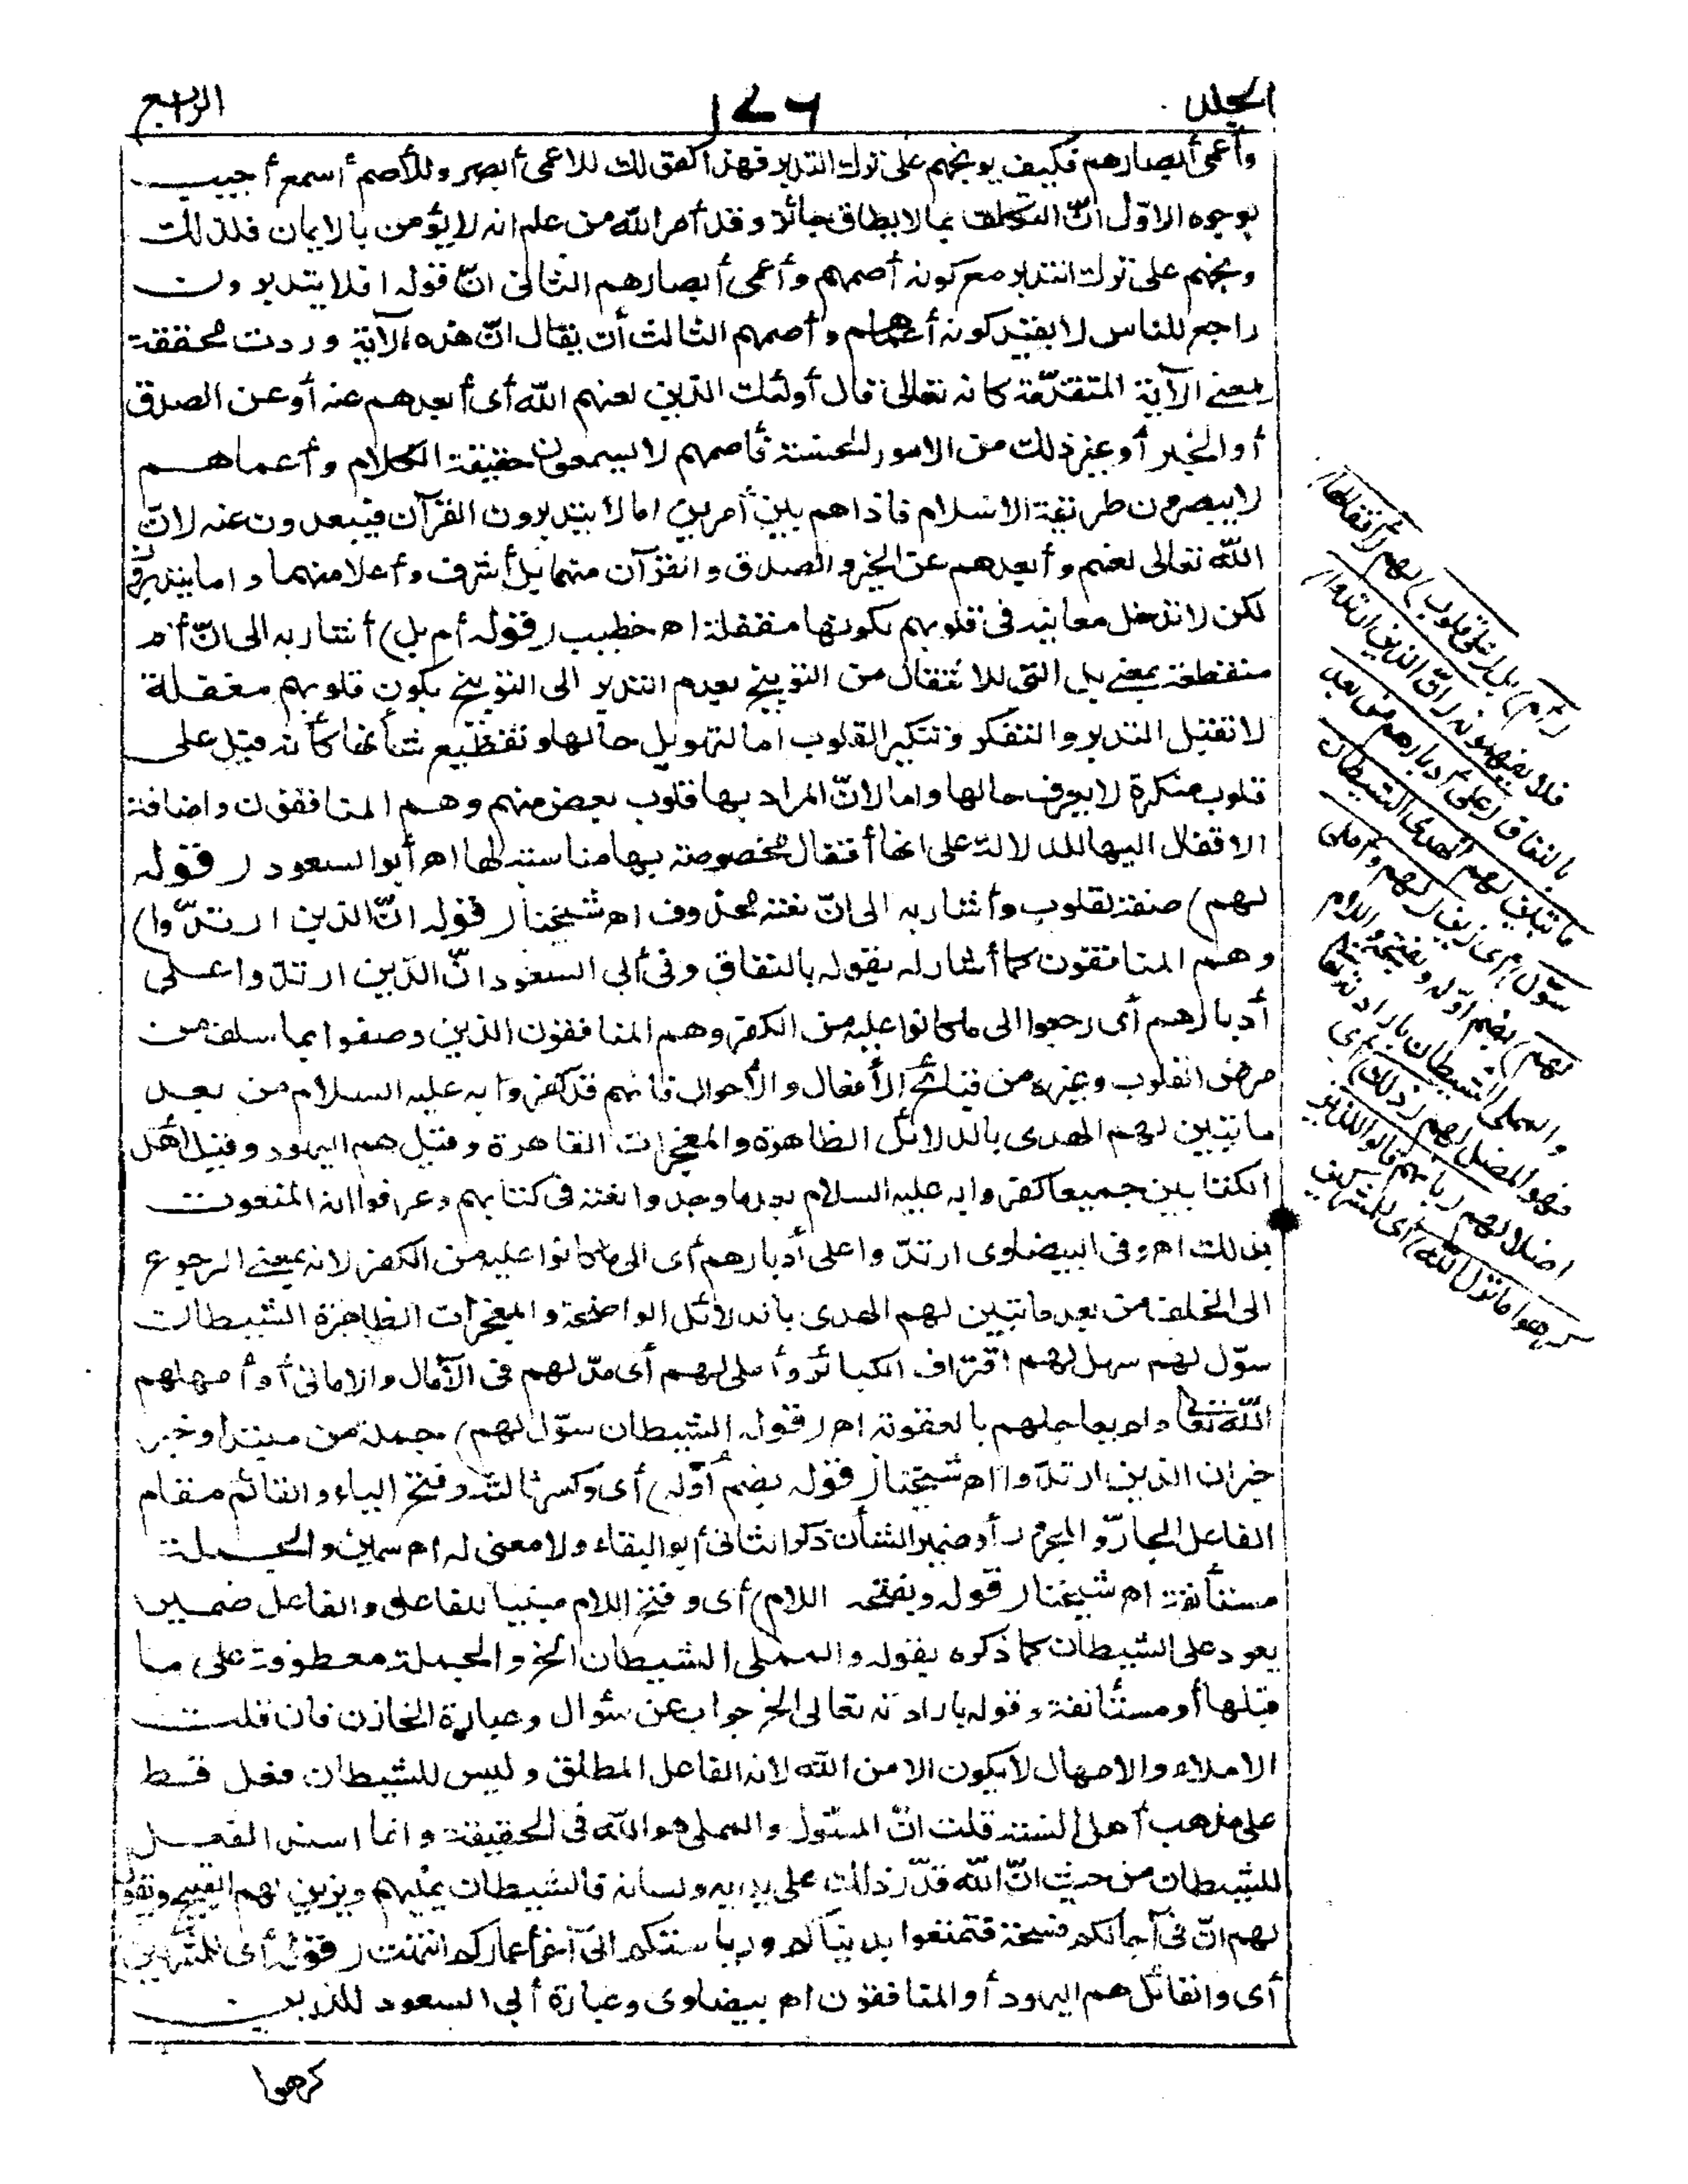 الجلد
١٤٦
الرابع
وأعمى أبصارهم فكيف يوبخهم على ترك التدبر فهذا كقولك للاعمى أبصر وللأصم أسمع أجيب
بوجوه الاوّل انّ التكليف بما لا يطاق جائز وقد أمر الله من علم انه لا يؤمن بالايمان فلذلك
وبخهم على ترك التدبر مع كونه أصمهم وأعمى أبصارهم الثانى انّ قوله افلا يتدبرون
راجع للناس لا بقيد كونه أعماهم وأصمهم الثالث أن يقال انّ هذه الآية وردت محققة
بمعنى الآية المتقدّمة كانه تعالى قال أولئك الذين لعنهم الله أى أبعدهم عنه أو عن الصدق
أو الخير أو غير ذلك من الامور الحسنة فأصمهم لا يسمعون حقيقة الكلام وأعماهم
لا يبصرون طريقة الاسلام فاذا هم بين أمرين اما لا يتدبرون القرآن فيبعدون عنه لانّ
الله تعالى لعنهم وأبعدهم عن الخير والصدق والقرآن منهما بل أشرف وأعلا منهما واما يتدبرون
لكن لا تدخل معانيه فى قلوبهم لكونها مقفلة اه خطيب (قوله أم بل) أشار به الى انّ أم
منقطعة بمعنى بل التى للانتقال من التوبيخ بعدم التدبر الى التوبيخ بكون قلوبهم مقفلة
لا تقبل التدبر والتفكر وتنكير القلوب اما لتهويل حالها وتفظيع شأنها كأنه قيل على
قلوب منكرة لا يعرف حالها واما لانّ المراد بها قلوب بعض منهم وهم المنافقون واضافة
الاقفال اليها للدلالة على انها أقفال مخصوصة بها مناسبة لها اه أبو السعود (قوله
لهم) صفة لقلوب وأشار به الى انّ نعته محذوف اه شيخنا (قوله انّ الذين ارتدّوا)
وهم المنافقون كما أشار له بقوله بالنفاق وفى أبى السعود انّ الذين ارتدّوا على
أدبارهم أى رجعوا الى ما كانوا عليه من الكفر وهم المنافقون الذين وصفوا بما سلف من
مرض القلوب وغيره من قبائح الأفعال والأحوال فانهم قد كفروا به عليه السلام من بعد
ما تبين لهم الهدى بالدلائل الظاهرة والمعجزات القاهرة وقيل هم اليهود وقيل أهل
الكتابين جميعا كفروا به عليه السلام بعد ما وجدوا نعته فى كتابهم وعرفوا انه المنعوت
بذلك اه وفى البيضاوى ارتدّوا على أدبارهم أى الى ما كانوا عليه من الكفر لانه بمعنى الرجوع
الى الخلف من بعد ما تبين لهم الهدى بالدلائل الواضحة والمعجزات الظاهرة الشيطان
سوّل لهم سهل لهم اقتراف الكبائر وأملى لهم أى مدّ لهم فى الآمال والامانى أو أمهلهم
الله تعالى ولم يعاجلهم بالعقوبة اه (قوله الشيطان سوّل لهم) جملة من مبتدا وخبر
خبر ان الذين ارتدّوا اه شيخنا (قوله بضم أوّله) أى وكسر ثالثه وفتح الياء والقائم مقام
الفاعل الجارّ والمجرور أو ضمير الشأن ذكر الثانى أبو البقاء ولا معنى له اه سمين والجملة
مستأنفة اه شيخنا (قوله وبفتحه واللام) أى وفتح اللام مبنيا للفاعل والفاعل ضمير
يعود على الشيطان كما ذكره بقوله والمملى الشيطان الخ والجملة معطوفة على ما
قبلها أو مستأنفة وقوله بارادته تعالى الخ جواب عن سؤال وعبارة الخازن فان قلت
الاملاء والامهال لا يكون الا من الله لانه الفاعل المطلق وليس للشيطان فعل قط
على مذهب أهل السنة قلت انّ المسوّل والمملى هو الله فى الحقيقة وانما اسند الفعل
للشيطان من حيث انّ الله قدّر ذلك على يديه ولسانه فالشيطان يمنيهم ويزين لهم القبيح ويقول
لهم انّ فى آجالكم فسحة فتمتعوا بدنياكم ورياستكم الى آخر أعماركم انتهت (قوله أى للمشركين)
أى والقائل هم اليهود أو المنافقون اه بيضاوى وعبارة أبى السعود للذين
كرهوا
(أم) بل (على قلوب) لهم (أقفالها)
فلا يفهمونه (انّ الذين ارتدوا)
بالنفاق (على أدبارهم من بعد
ما تبين لهم الهدى الشيطان
سوّل) أى زين (لهم وأملى
لهم) بضم اوّله وبفتحه واللام
والمملى الشيطان بارادته تعالى
فهو المضل لهم (ذلك) أى
اضلالهم (بأنهم قالوا للذين
كرهوا ما نزل الله) أى للمشركين